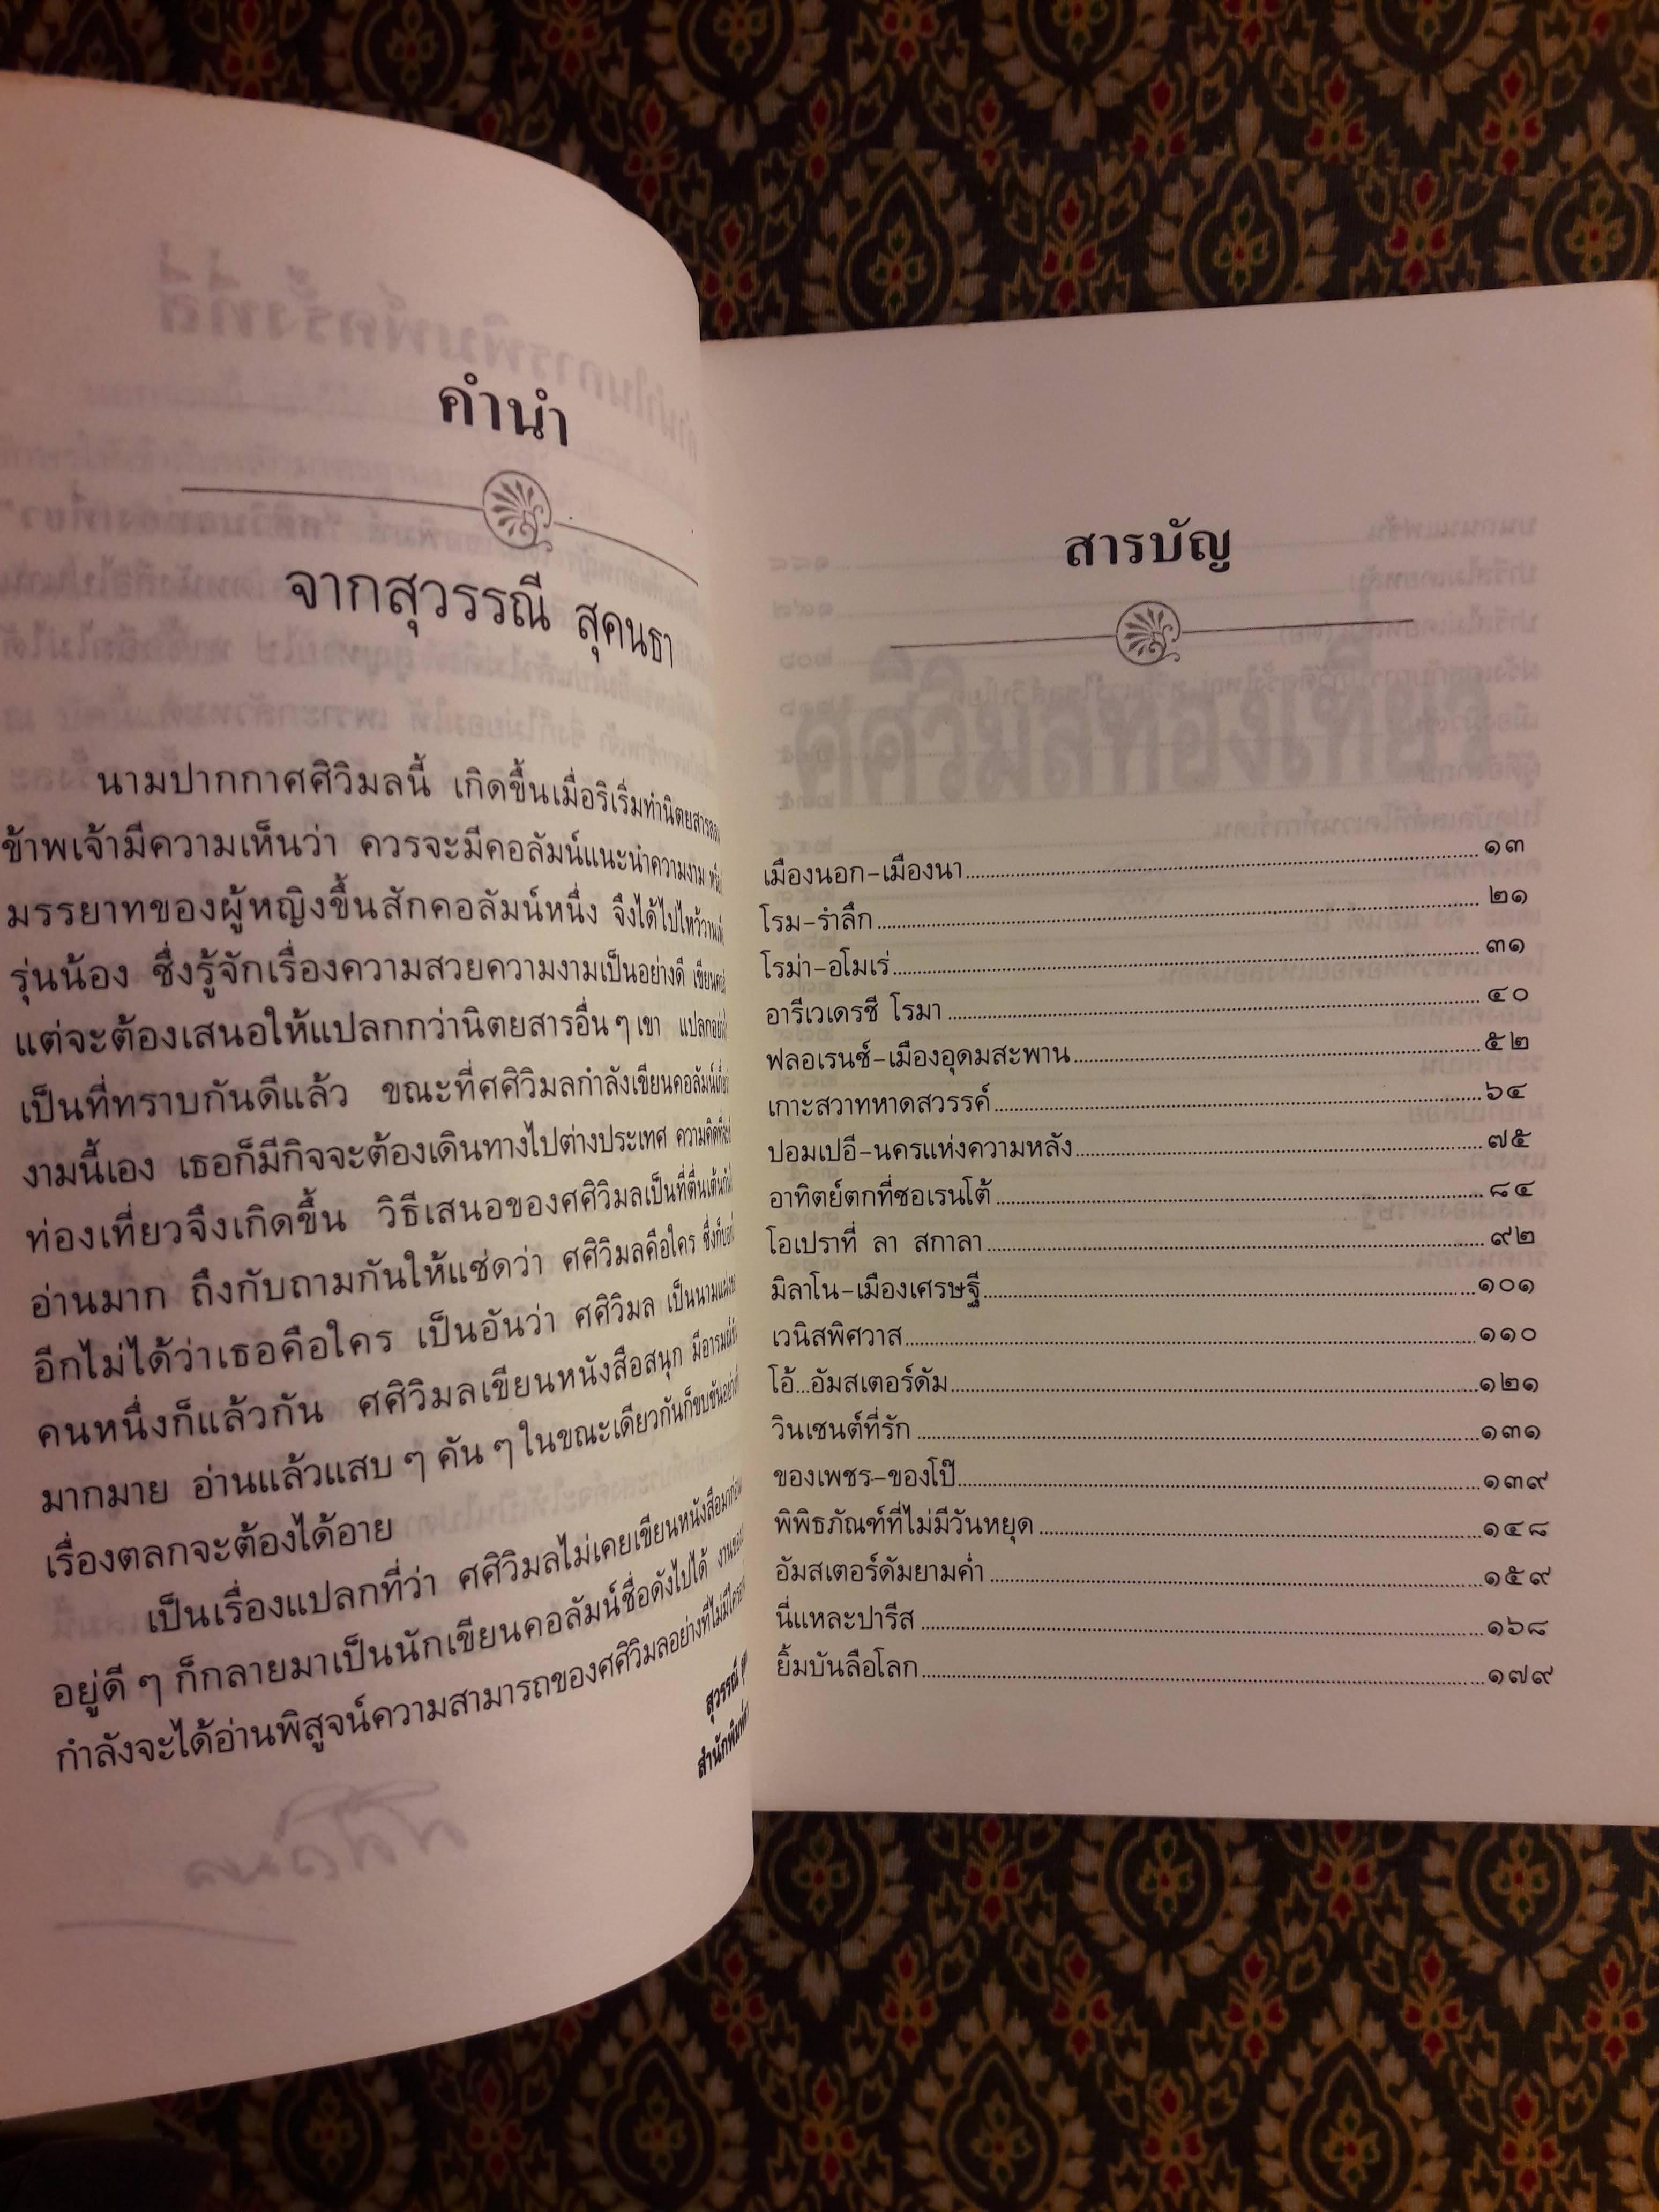 คำนำ
จากสุวรรณี สุคนธา
นามปากกาศศิวิมลนี้ เกิดขึ้นเมื่อริเริ่มทำนิตยสาร
ข้าพเจ้ามีความเห็นว่า ควรจะมีคอลัมน์แนะนำความงาม
มรรยาทของผู้หญิงขึ้นสักคอลัมน์หนึ่ง จึงได้ไปไหว้วาน
รุ่นน้อง ซึ่งรู้จักเรื่องความสวยความงามเป็นอย่างดี
แต่จะต้องเสนอให้แปลกกว่านิตยสารอื่น ๆ เขา
เป็นที่ทราบกันดีแล้ว ขณะที่ศศิวิมลกำลังเขียนคอลัมน์
งามนี้เอง เธอก็มีกิจจะต้องเดินทางไปต่างประเทศ
ท่องเที่ยวจึงเกิดขึ้น วิธีเสนอของศศิวิมลเป็นที่ตื่นเต้น
อ่านมาก ถึงกับถามกันให้แซ่ดว่า ศศิวิมลคือใคร
อีกไม่ได้ว่าเธอคือใคร เป็นอันว่า ศศิวิมล
คนหนึ่งก็แล้วกัน ศศิวิมลเขียนหนังสือสนุก
มากมาย อ่านแล้วแสบ ๆ คัน ๆ ในขณะเดียวกันก็ขบขัน
เรื่องตลกจะต้องได้อาย
เป็นเรื่องแปลกที่ว่า ศศิวิมลไม่เคยเขียนหนังสือ
อยู่ดี ๆ ก็กลายมาเป็นนักเขียนคอลัมน์ชื่อดังไปได้
กำลังจะได้อ่านพิสูจน์ความสามารถของศศิวิมลอย่างที่ไม่มี
สุวรรณี
สำนักพิมพ์
สารบัญ
เมืองนอก-เมืองนา ๑๓
โรม-รำลึก ๒๑
โรม่า-อโมเร่ ๓๑
อารีเวเดรซี โรมา ๔๐
ฟลอเรนซ์-เมืองอุดมสะพาน ๕๒
เกาะสวาทหาดสวรรค์ ๖๔
ปอมเปอี-นครแห่งความหลัง ๗๕
อาทิตย์ตกที่ซอเรนโต้ ๘๔
โอเปราที่ ลา สกาลา ๙๒
มิลาโน-เมืองเศรษฐี ๑๐๑
เวนิสพิศวาส ๑๑๐
โอ้...อัมสเตอร์ดัม ๑๒๑
วินเซนต์ที่รัก ๑๓๑
ของเพชร-ของโป๊ ๑๓๙
พิพิธภัณฑ์ที่ไม่มีวันหยุด ๑๔๘
อัมสเตอร์ดัมยามค่ำ ๑๕๙
นี่แหละปารีส ๑๖๘
ยิ้มบันลือโลก ๑๗๙